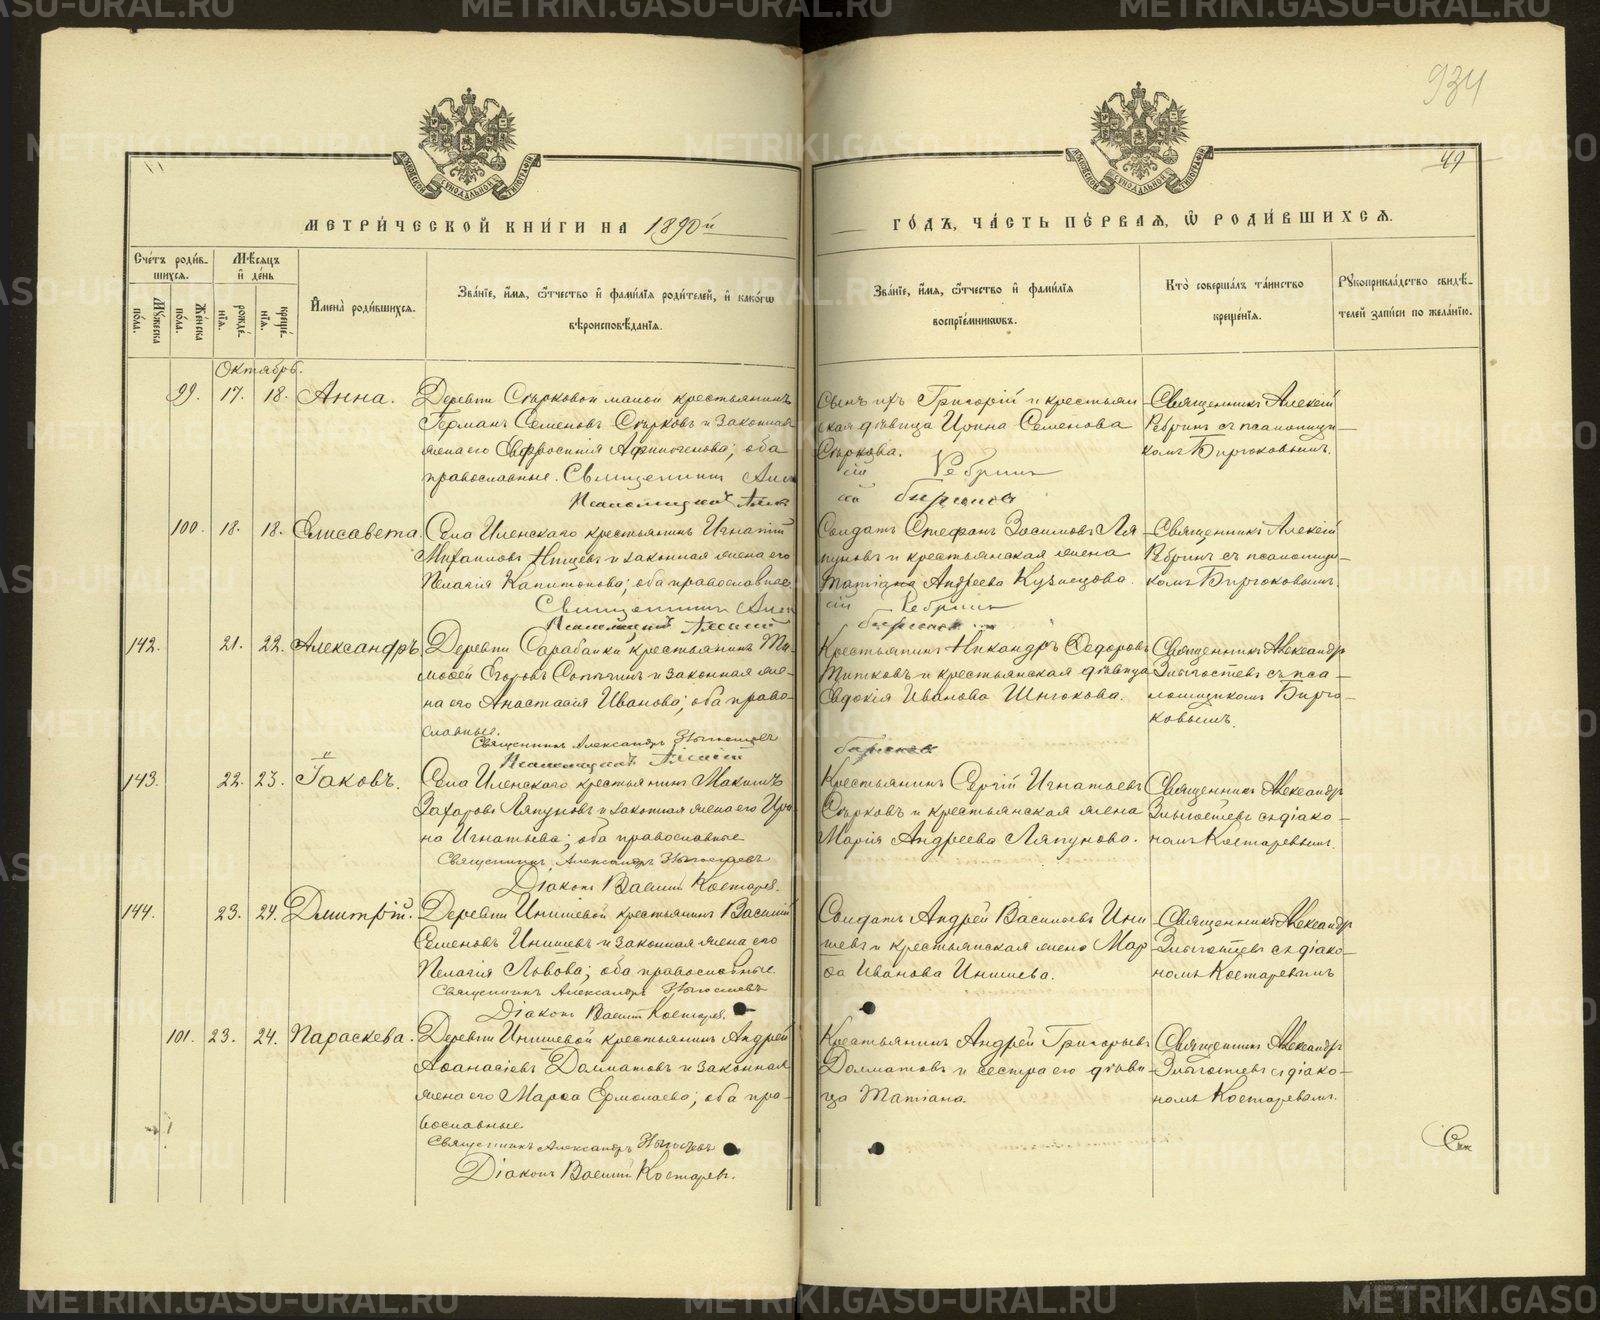 934
49
МОСКОВСКОЙ СѴНОДАЛЬНОЙ ТИПОГРАФІИ
МОСКОВСКОЙ СѴНОДАЛЬНОЙ ТИПОГРАФІИ
МЕТРИ́ЧЕСКОЙ КНИ́ГИ НА 1890й
ГО́ДЪ, ЧА́СТЬ ПЕ́РВАЯ, Ѡ҆ РОДИ́ВШИХСЯ.
Сче́тъ роди́вшихся.
Мѣ́сяцъ и҆ де́нь
Мꙋжеска по́ла.
Же́нска по́ла.
рожде́нїя.
креще́нїя.
И҆мена̀ роди́вшихся.
Зва́нїе, и҆́мя, ѻ҆́тчество и҆ фами́лїя роди́телей, и҆ како́гѡ
вѣроисповѣ́данїя.
Зва́нїе, и҆́мя, ѻ҆́тчество и҆ фами́лїя
воспрїе́мникѡвъ.
Кто̀ соверша́лъ та́инство
креще́нїя.
Рꙋкоприкла́дство свидѣ́-
телей за́писи по жела́нїю.
Октябрь.
99. 17. 18. Анна.
Деревни Сѣрковой малой крестьянинъ
Германъ Семеновъ Сѣрковъ и законная
жена его Евфросинія Афиногенова; оба
православные. Священникъ
Сынъ ихъ Григорій и крестьян
ская дѣвица Ирина Семенова
Сѣркова.
Ребринъ
Священникъ Алексій
Ребринъ съ псаломщи-
комъ Бирюковымъ.
100. 18. 18. Елисавета.
Села Иленскаго крестьянинъ Игнатій
Михаиловъ и законная жена его
Пелагія Капитонова; оба православные
Священникъ
Солдатъ Стефанъ Зосимовъ Ля
пуновъ и крестьянская жена
Татіана Андреева Кузнецова.
Ребринъ
Священникъ Алексій
Ребринъ съ псаломщи-
комъ Бирюковымъ.
142. 21. 22. Александръ.
Деревни Сарабайки крестьянинъ Ти-
моѳей Егоровъ и законная же-
на его Анастасія Иванова; оба право-
славные.
Священникъ Александръ
Крестьянинъ Никандръ Ѳедоровъ
Титковъ и крестьянская дѣвица
Евдокія Иванова
Священникъ Александръ
съ пса-
ломщикомъ Бирю-
ковымъ.
143. 22. 23. Іаковъ.
Села Иленскаго крестьянинъ Максимъ
Захаровъ Ляпуновъ и законная жена его Ири
на Игнатьева; оба православные
Священникъ Александръ
Діаконъ Василій Костаревъ.
Крестьянинъ Сергій Игнатьевъ
Сѣрковъ и крестьянская жена
Марія Андреева Ляпунова.
Священникъ Александръ
съ діако-
номъ Костаревымъ.
144. 23. 24. Димитрій.
Деревни Инишевой крестьянинъ Василій
Семеновъ Инишевъ и законная жена его
Пелагія Львова; оба православные
Священникъ Александръ
Діаконъ Василій Костаревъ.
Солдатъ Андрей Василіевъ Ини
шевъ и крестьянская жена Мар
ѳа Иванова Инишева.
Священникъ Александръ
съ діако-
номъ Костаревымъ
101. 23. 24. Параскева.
Деревни Инишевой крестьянинъ Андрей
Аѳанасіевъ Долматовъ и законная
жена его Марѳа Ермолаева; оба пра-
вославные
Священникъ Александръ
Діаконъ Василій Костаревъ.
Крестьянинъ Андрей Григорьевъ
Долматовъ и сестра его дѣви
ца Татіана.
Священникъ Александръ
съ діако-
номъ Костаревымъ.
METRIKI.GASO-URAL.RU